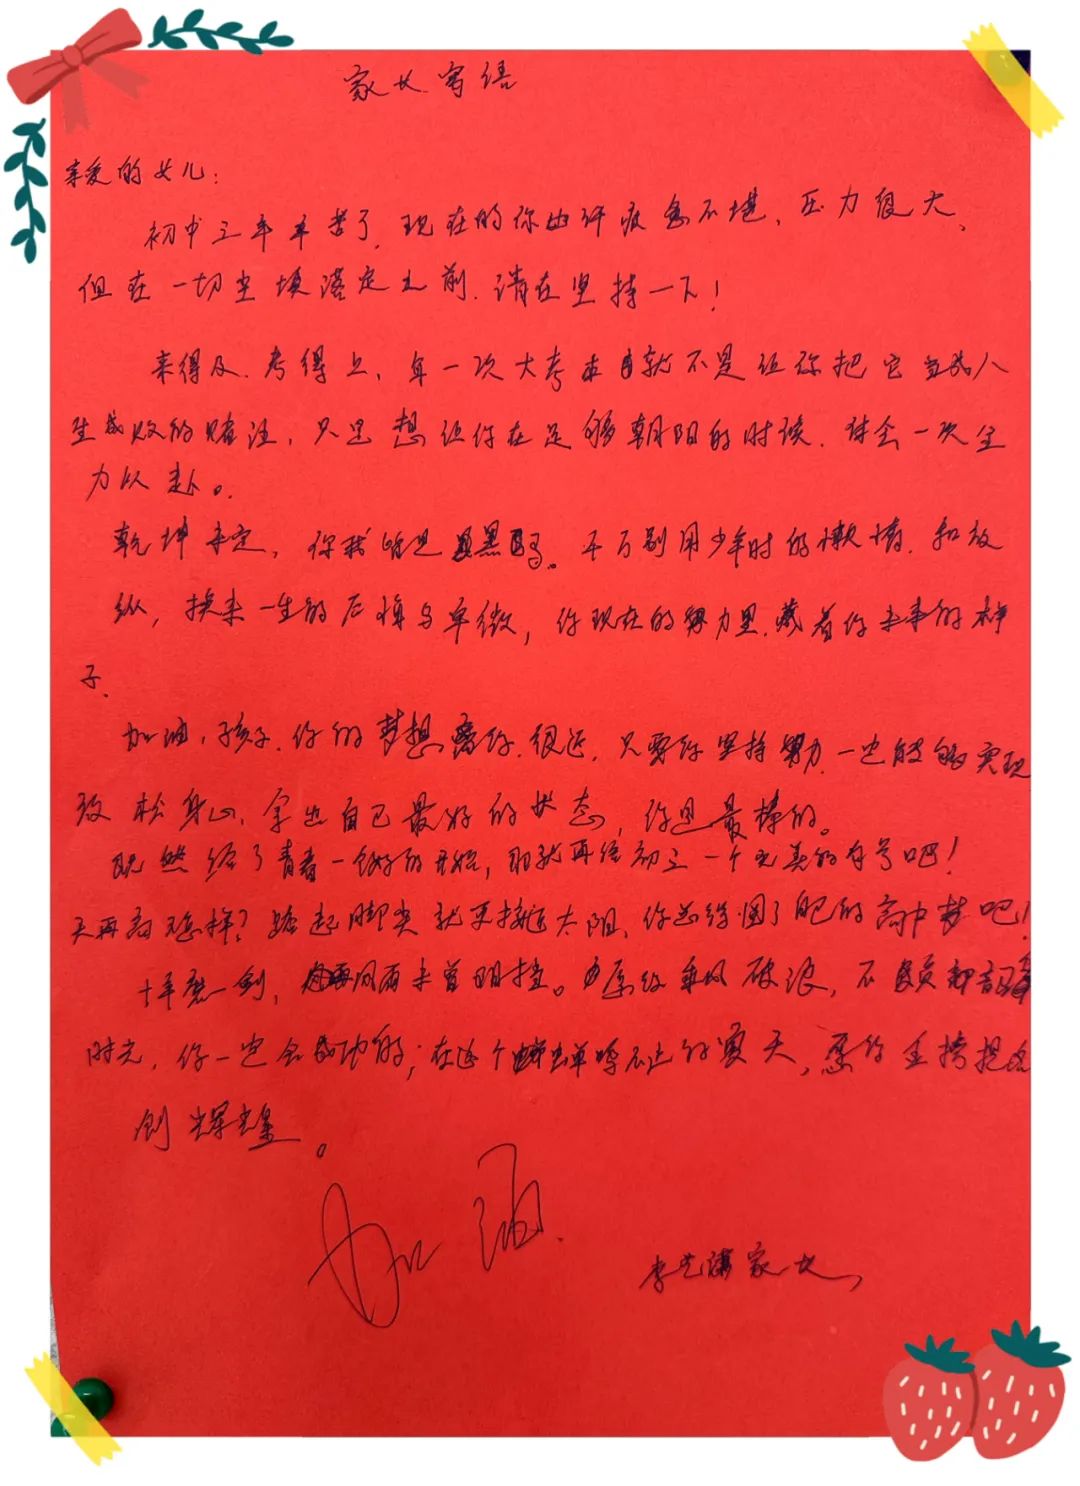 家长寄语
亲爱的女儿：
初中三年辛苦了，现在的你也许疲惫不堪，压力很大，
但在一切尘埃落定之前，请在坚持一下！
来得及，考得上，每一次大考本自就不是让你把它当成人
生成败的赌注，只是想让你在足够朝阳的时候，体会一次全
力以赴。
乾坤未定，你我皆是黑马。千万别用少年时的懒惰，和放
纵，换来一生的后悔与卑微，你现在的努力里，藏着你未来的样
子，
加油，孩子，你的梦想离你很近，只要你坚持努力，一定能够实现
放松身心，拿出自己最好的状态，你是最棒的。
既然给了青春一个好的开始，那就再给初三一个完美的句号吧！
天再高怎样？踮起脚尖就更接近太阳，你必给圆了的高中梦吧！
十年磨一剑，风雨未曾阻挡。愿你乘风破浪，不负韶
时光，你一定会成功的；在这个蝉鸣不止的夏天，愿你金榜提名
创辉煌。
加油
李艺 家长